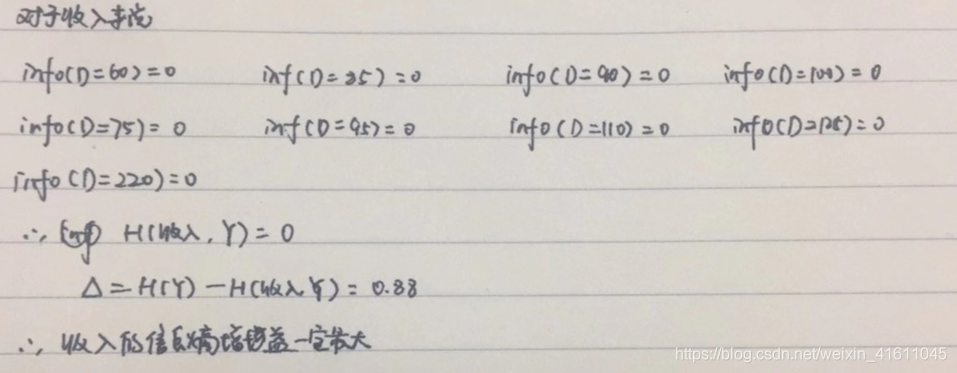 对于收入来说
info(D=60)=0 inf(D=85)=0 info(D=90)=0 info(D=100)=0
info(D=75)=0 inf(D=95)=0 info(D=110)=0 info(D=125)=0
info(D=220)=0
∴ H(收入, Y)=0
Δ=H(Y)-H(收入 Y)=0.88
∴ 收入的信息熵增益一定最大
https://blog.csdn.net/weixin_41611045